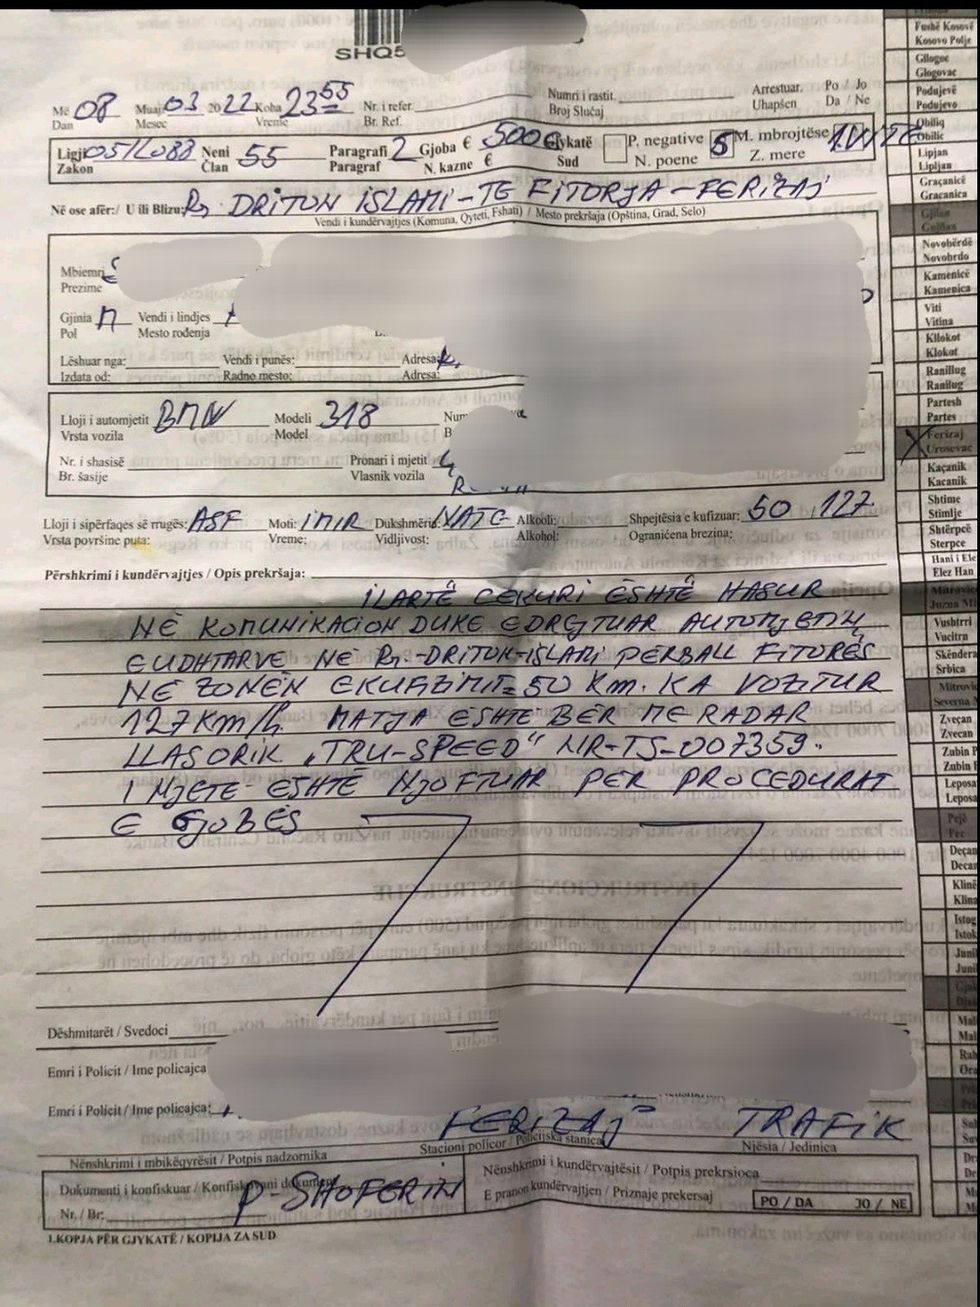 SHQ5
Më 08 Muaj 03 2022 Koha 23 55 Nr. i refer. Numri i rastit Arrestuar. Po / Jo
Dan Mesec Vreme Br. Ref. Broj Slućaj Uhapšen Da / Ne
Ligji 05/L088 Neni 55 Paragrafi 2 Gjoba € 500€ Gjykatë P. negative 5 M. mbrojtëse
Zakon Član Paragraf N. kazne € Sud N. poene Z. mere
Në ose afër:/ U ili Blizu: Rr DRITON ISLAMI-TE FITORJA-FERIZAJ
Vendi i kundërvajtjes (Komuna, Qyteti, Fshati) / Mesto prekršaja (Opština, Grad, Selo)
Mbiemri
Prezime
Gjinia M Vendi i lindjes
Pol Mesto rođenja
Lëshuar nga: Vendi i punës: Adresa:
Izdata od: Radno mesto: Adresa:
Lloji i automjetit BMW Modeli 318
Vrsta vozila Model
Nr. i shasisë Pronari i mjetit
Br. šasije Vlasnik vozila
Lloji i sipërfaqes së rrugës: ASF Moti: I MIR Dukshmëria: NATE Alkooli: Shpejtësia e kufizuar: 50, 127
Vrsta površine puta: Vreme: Vidljivost: Alkohol: Ograničena brezina:
Përshkrimi i kundërvajtjes / Opis prekršaja:
ILARTË CEKURI ËSHTË HASUR
NË KOMUNIKACION DUKE EDREJTUAR AUTOMJETIN
EUDHTARVE NË Rr.-DRITON-ISLAMI PËRBALL FITORËS
NË ZONËN EKUFIZIMIT=50 KM. KA VOZITUR
127KM/h. MATJA ËSHTË BËR ME RADAR
LLASORIK „TRU-SPEED“ NR-TS-007359.
I MJETE ËSHTË NJOFTUAR PËR PROCEDURAT
E GJOBËS
Dëshmitarët / Svedoci
Emri i Policit / Ime policajca
Emri i Policit / Ime policajca:
FERIZAJ TRAFIK
Nënshkrimi i mbikëqyrësit / Potpis nadzornika Stacioni policor / Policijska stanica Njësia / Jedinica
Dokumenti i konfiskuar / Konfiskovani dokument P-SHOFERIN
Nr. / Br.
Nënshkrimi i kundërvajtësit / Potpis prekrsioca
E pranon kundërvajtjen / Priznaje prekersaj PO / DA JO / NE
1.KOPJA PËR GJYKATË / KOPIJA ZA SUD
Fushë Kosovë
Kosovo Polje
Gllogoc
Glogovac
Podujevë
Podujevo
Obiliq
Obilic
Lipjan
Lipljan
Graçanicë
Gracanica
Gjilan
Gnjilan
Novobërdë
Novobrdo
Kamenicë
Kamenica
Viti
Vitina
Kllokot
Klokot
Ranillug
Ranilug
Partesh
Partes
X Ferizaj
Urosevac
Kaçanik
Kacanik
Shtime
Stimlje
Shtërpcë
Sterpce
Hani i Ele
Elez Han
Mitrovic
Juzna M
Vushtrri
Vucitrn
Skëndera
Srbica
Mitrovic
Severna M
Zveçan
Zvecan
Zubin P
Zubin P
Leposa
Leposa
Pejë
Pec
Deçan
Decan
Klinë
Klina
Istog
Istok
Juni
Juni